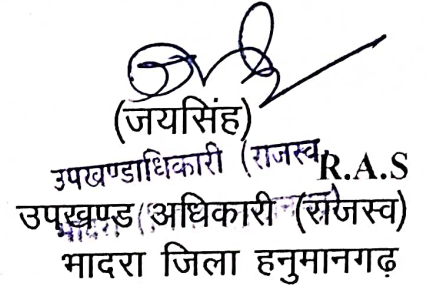 (जयसिंह)
उपखण्डाधिकारी (राजस्व
R.A.S
उपखण्ड अधिकारी (राजस्व)
भादरा जिला हनुमानगढ़